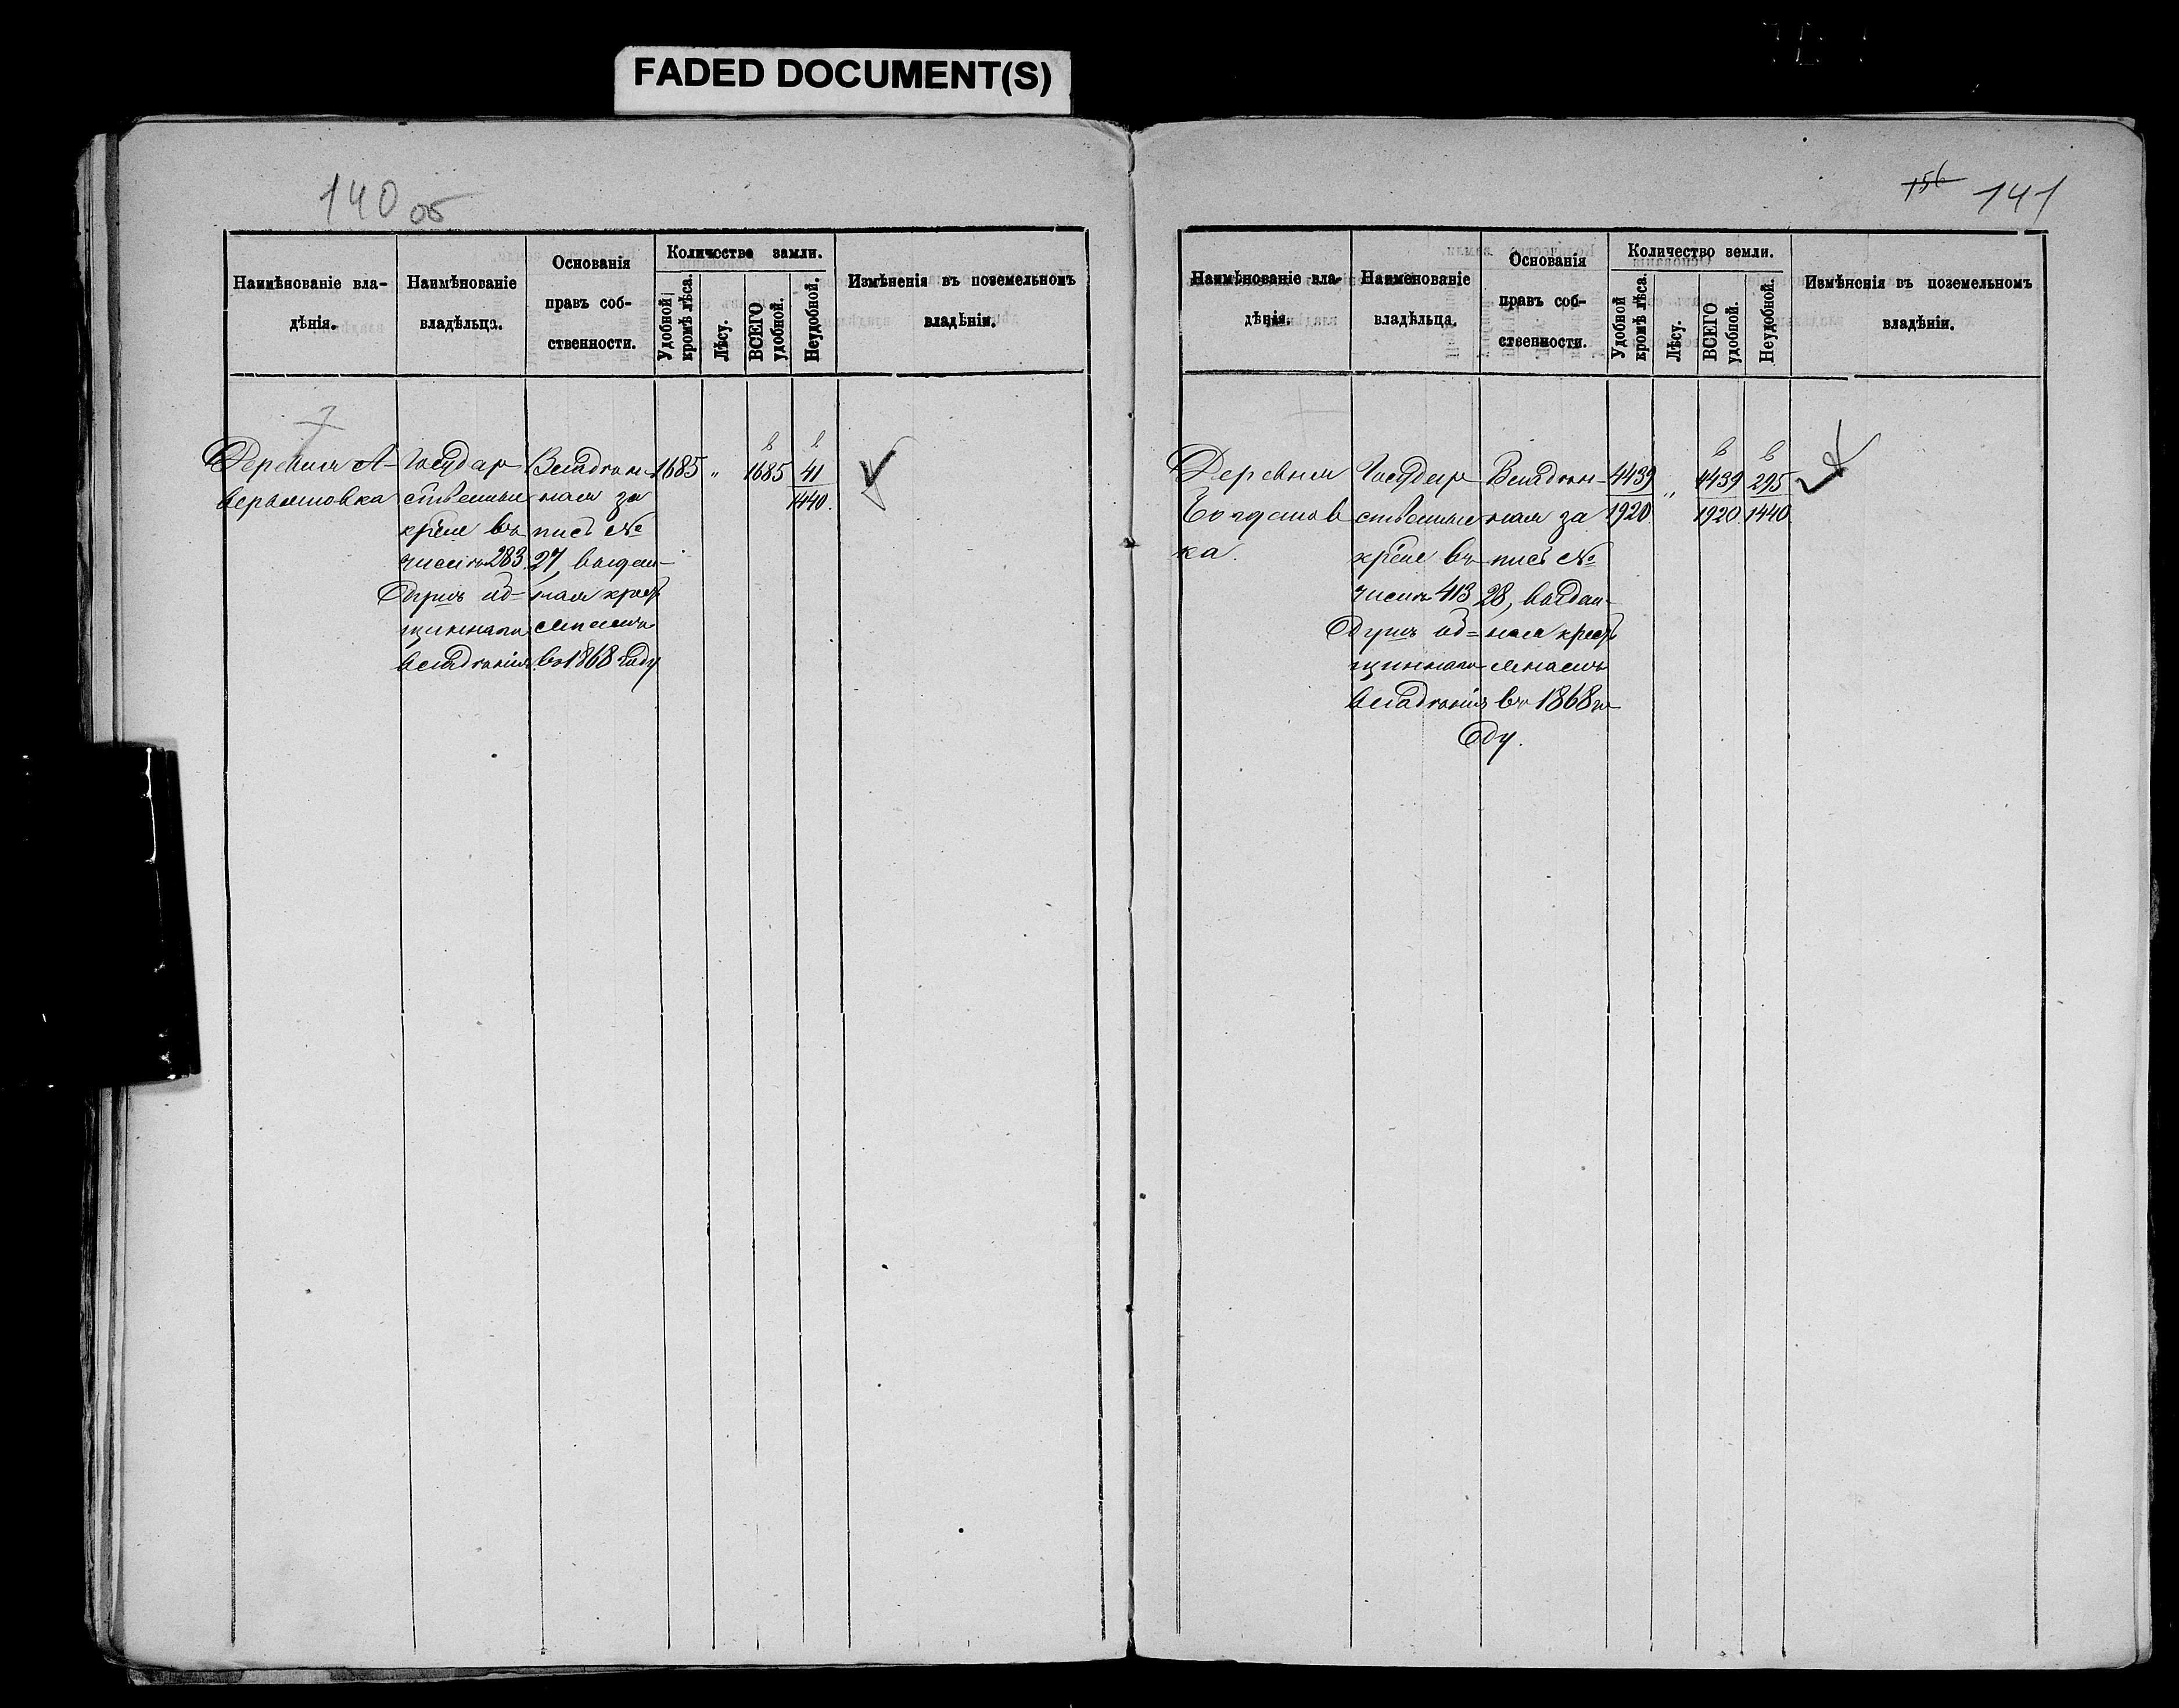 FADED DOCUMENT(S)
140 об
Наимѣнованіе вла-
дѣнія.
Наимѣнованіе
владѣльца.
Основанія
правъ соб-
ственности.
Количество земли.
Удобной
кромѣ лѣса.
Лѣсу.
ВСЕГО
удобной.
Неудобной.
Измѣненія въ поземельномъ
владѣніи.
Деревня А-
верьяновка
Государ
ственные
крѣне въ
числѣ 283
душъ об=
щиннаго
владѣнія
Владѣн-
ная за
пись №
27, выдан-
ная кресть
янамъ
въ 1868 году
1685
"
1685
41
1440.
156 141
Наимѣнованіе вла-
дѣнія.
Наименованіе
владѣльца.
Основанія
правъ соб-
ственности.
Количество земли.
Удобной
кромѣ лѣса.
Лѣсу.
ВСЕГО
удобной.
Неудобной.
Измѣненія въ поземельномъ
владѣніи.
Деревня
Богданов
ка.
Государ
ственные
крѣне въ
числѣ 413
душъ об=
щиннаго
владѣнія
Владѣн-
ная за
пись №
28, выдан-
ная кресть
янамъ
въ 1868 го
ду.
4439
1920
"
4439
1920.
295
1440